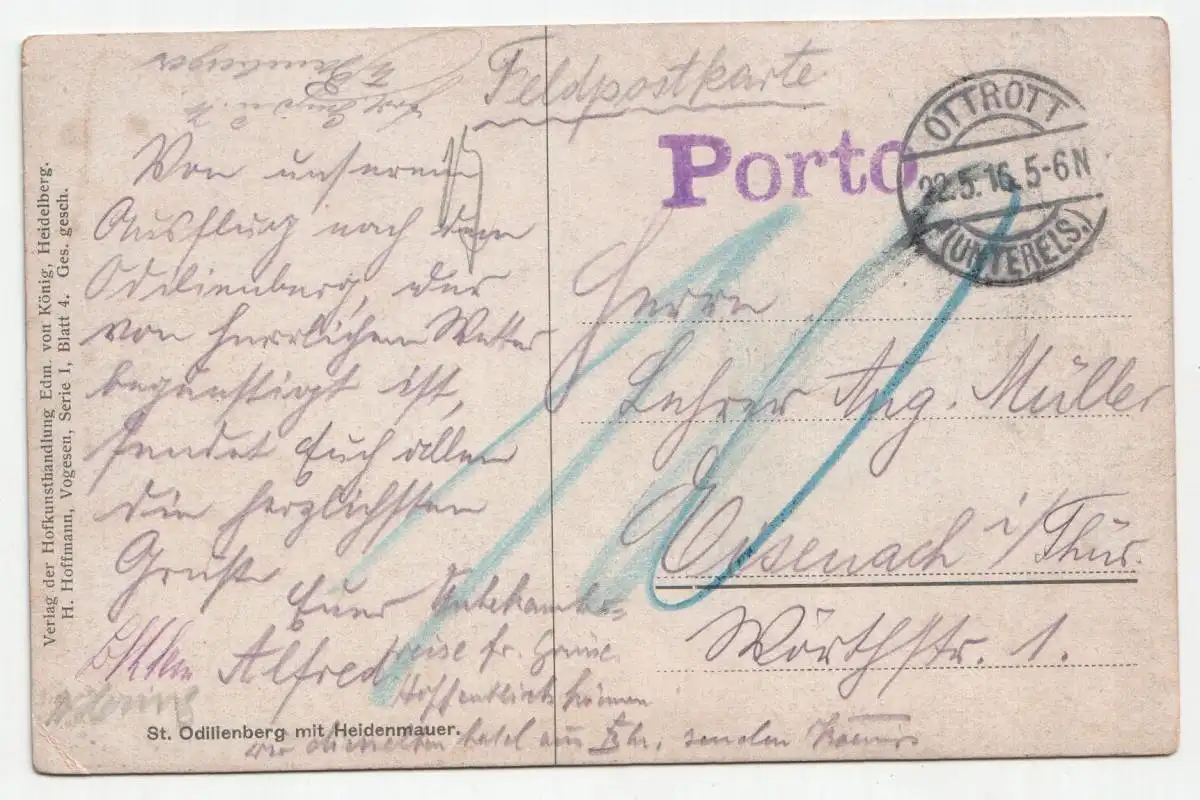 Verlag der Hofkunsthandlung Edm. von König, Heidelberg.
H. Hoffmann, Vogesen, Serie I, Blatt 4. Ges. gesch.
Feldpostkarte
Porto
OTTROTT
22.5.16. 5-6N
(UNTERELS.)
Von unserem
Ausflug nach dem
Odilienberg, der
von herrlichem Wetter
begünstigt ist,
sendet Euch allen
die herzlichsten
Grüße
Euer
Alfred
Herrn
Lehrer Aug. Müller
Eisenach i/Thür.
Wörthstr. 1.
Hoffentlich können
wir
senden
St. Odilienberg mit Heidenmauer.